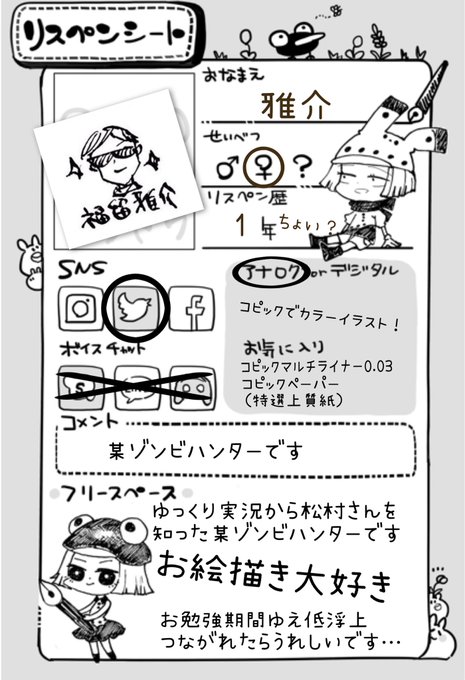 リスペンシート
おなまえ
雅介
せいべつ
♂ ♀ ?
リスペン歴
1年ちょい?
福留雅介
SNS
アナログ or デジタル
コピックでカラーイラスト!
お気に入り
コピックマルチライナー0.03
コピックペーパー
(特選上質紙)
ボイスチャット
コメント
某ゾンビハンターです
フリースペース
ゆっくり実況から松村さんを
知った某ゾンビハンターです
お絵描き大好き
お勉強期間ゆえ低浮上
つながれたらうれしいです…